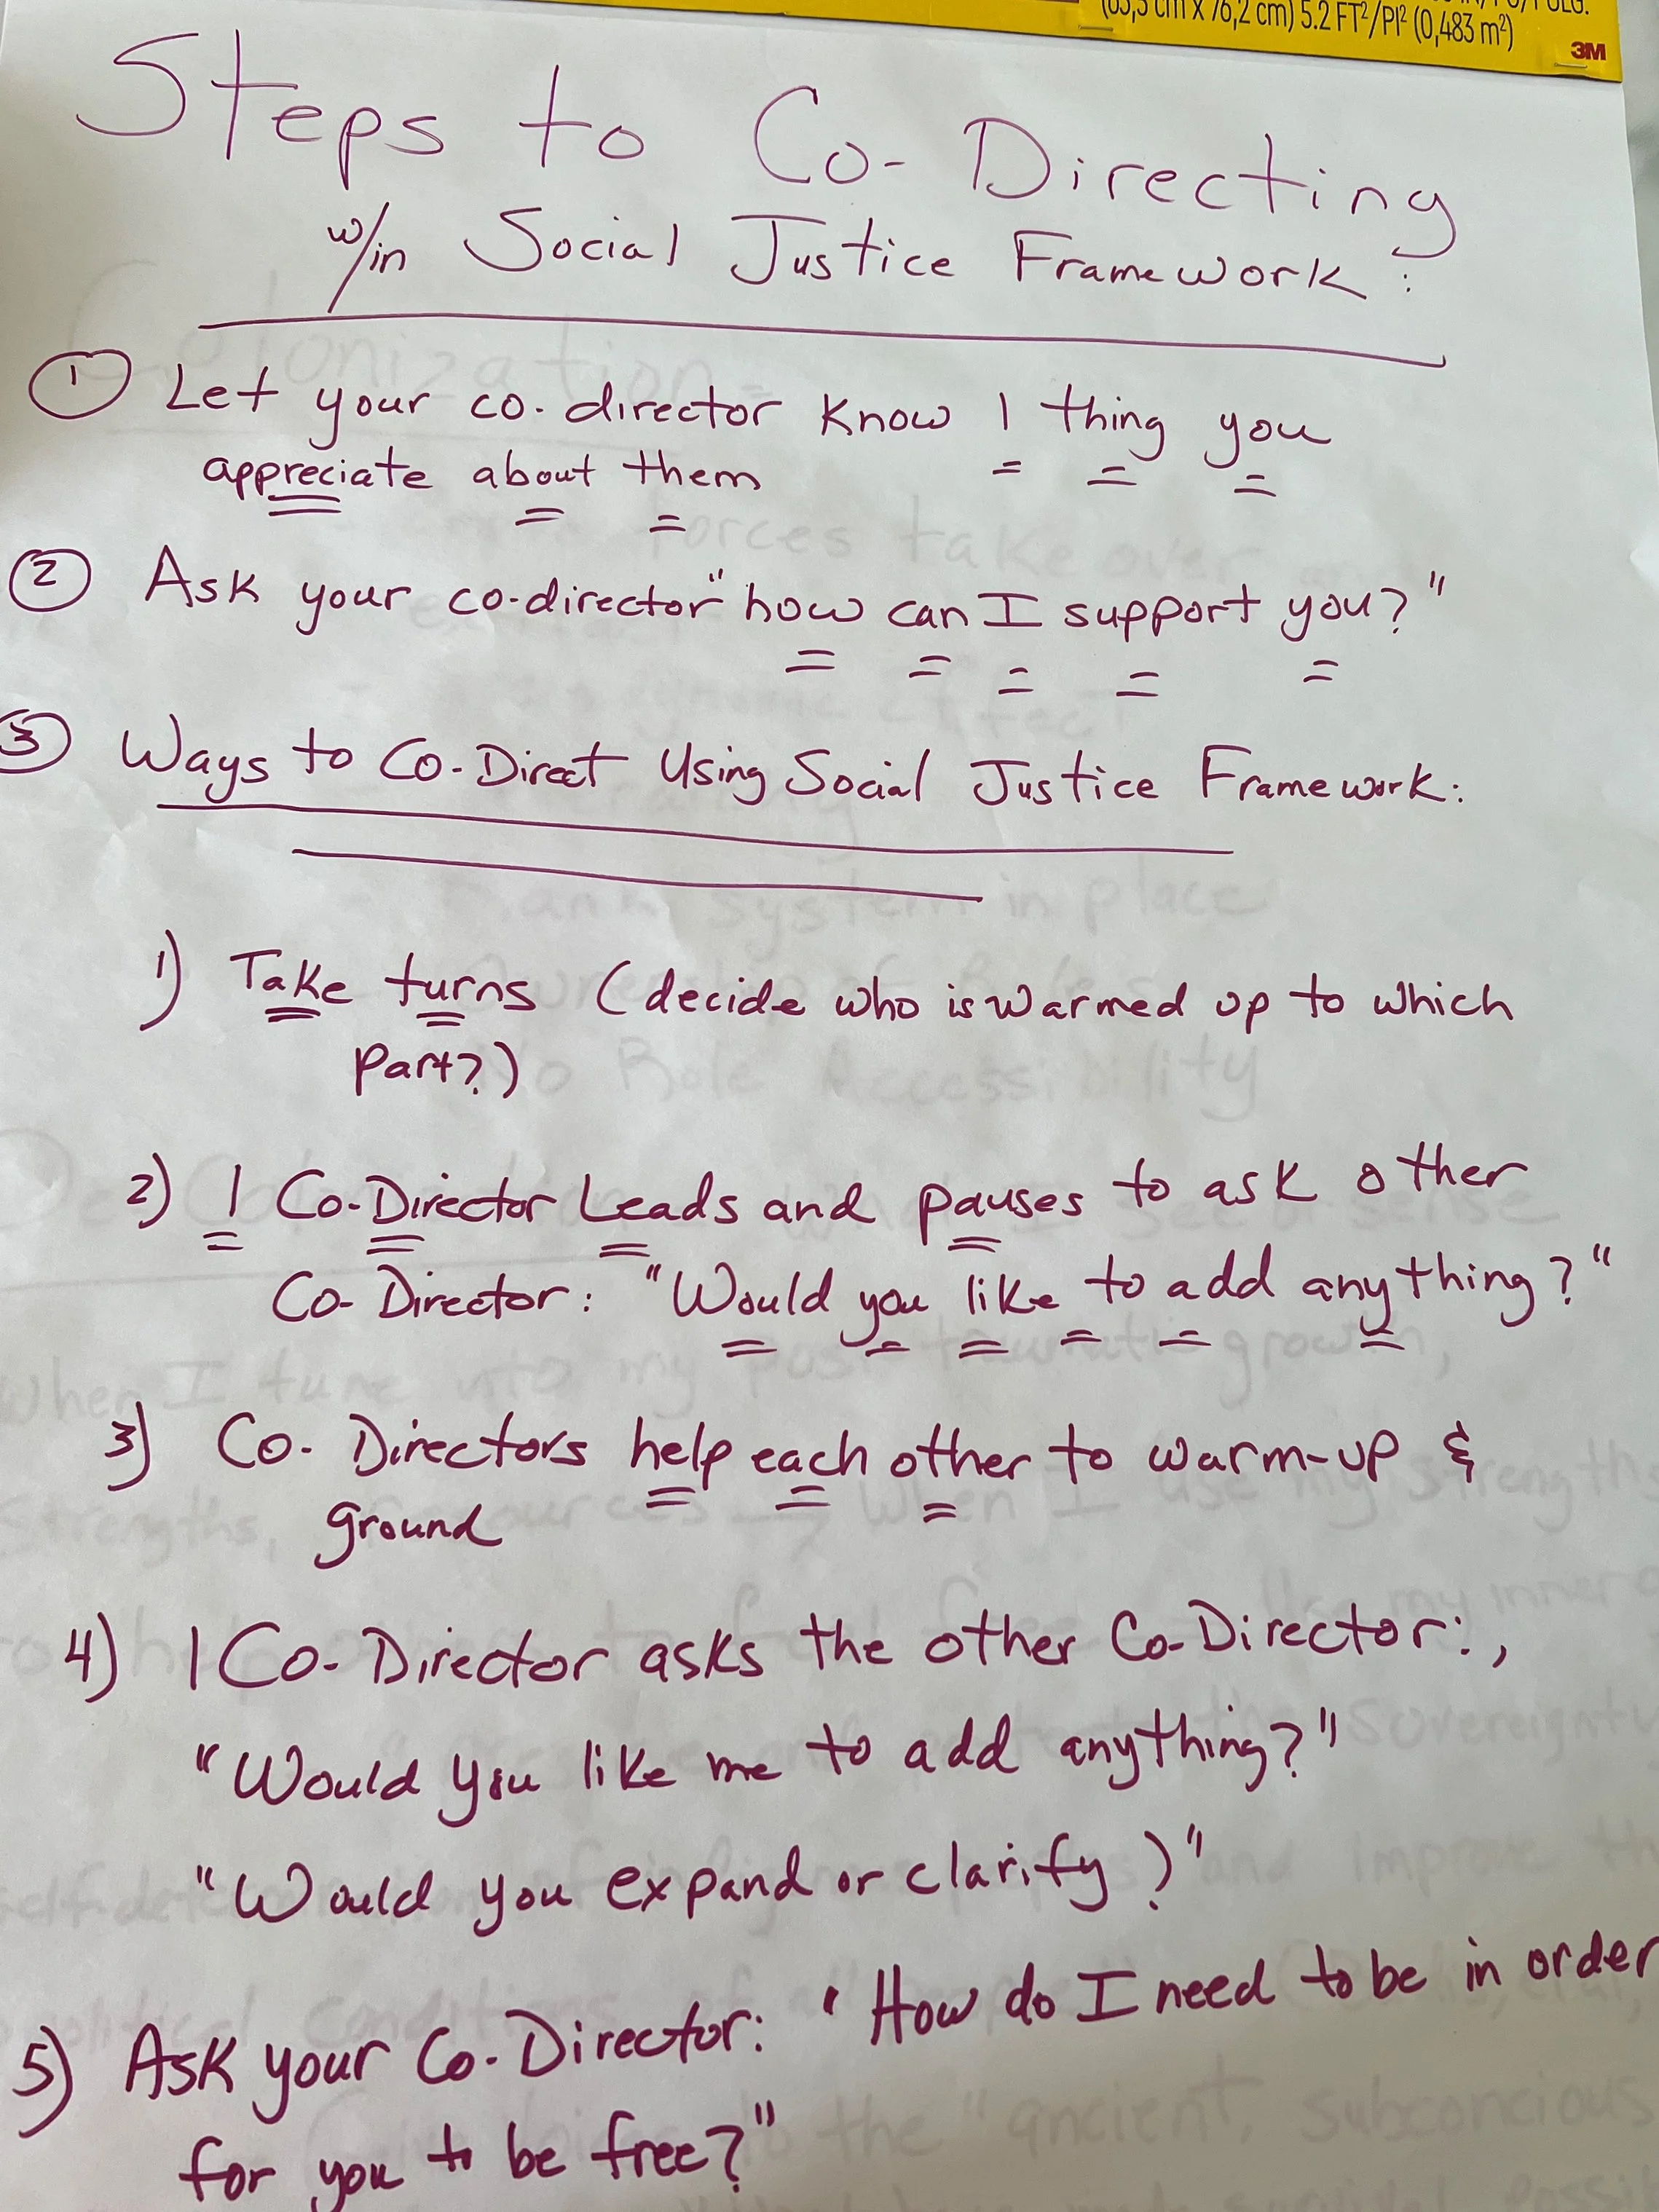 (63,5 cm x 76,2 cm) 5.2 FT²/PI² (0,483 m²)
3M
Steps to Co-Directing
w/in Social Justice Framework:
① Let your co-director know 1 thing you
appreciate about them
② Ask your co-director "how can I support you?"
③ Ways to Co-Direct Using Social Justice Framework:
1) Take turns (decide who is warmed up to which
part?)
2) 1 Co-Director Leads and pauses to ask other
Co-Director: "Would you like to add anything?"
3) Co-Directors help each other to warm-up &
ground
4) 1 Co-Director asks the other Co-Director:,
"Would you like me to add anything?"
"Would you expand or clarify?"
5) Ask your Co-Director: "How do I need to be in order
for you to be free?"